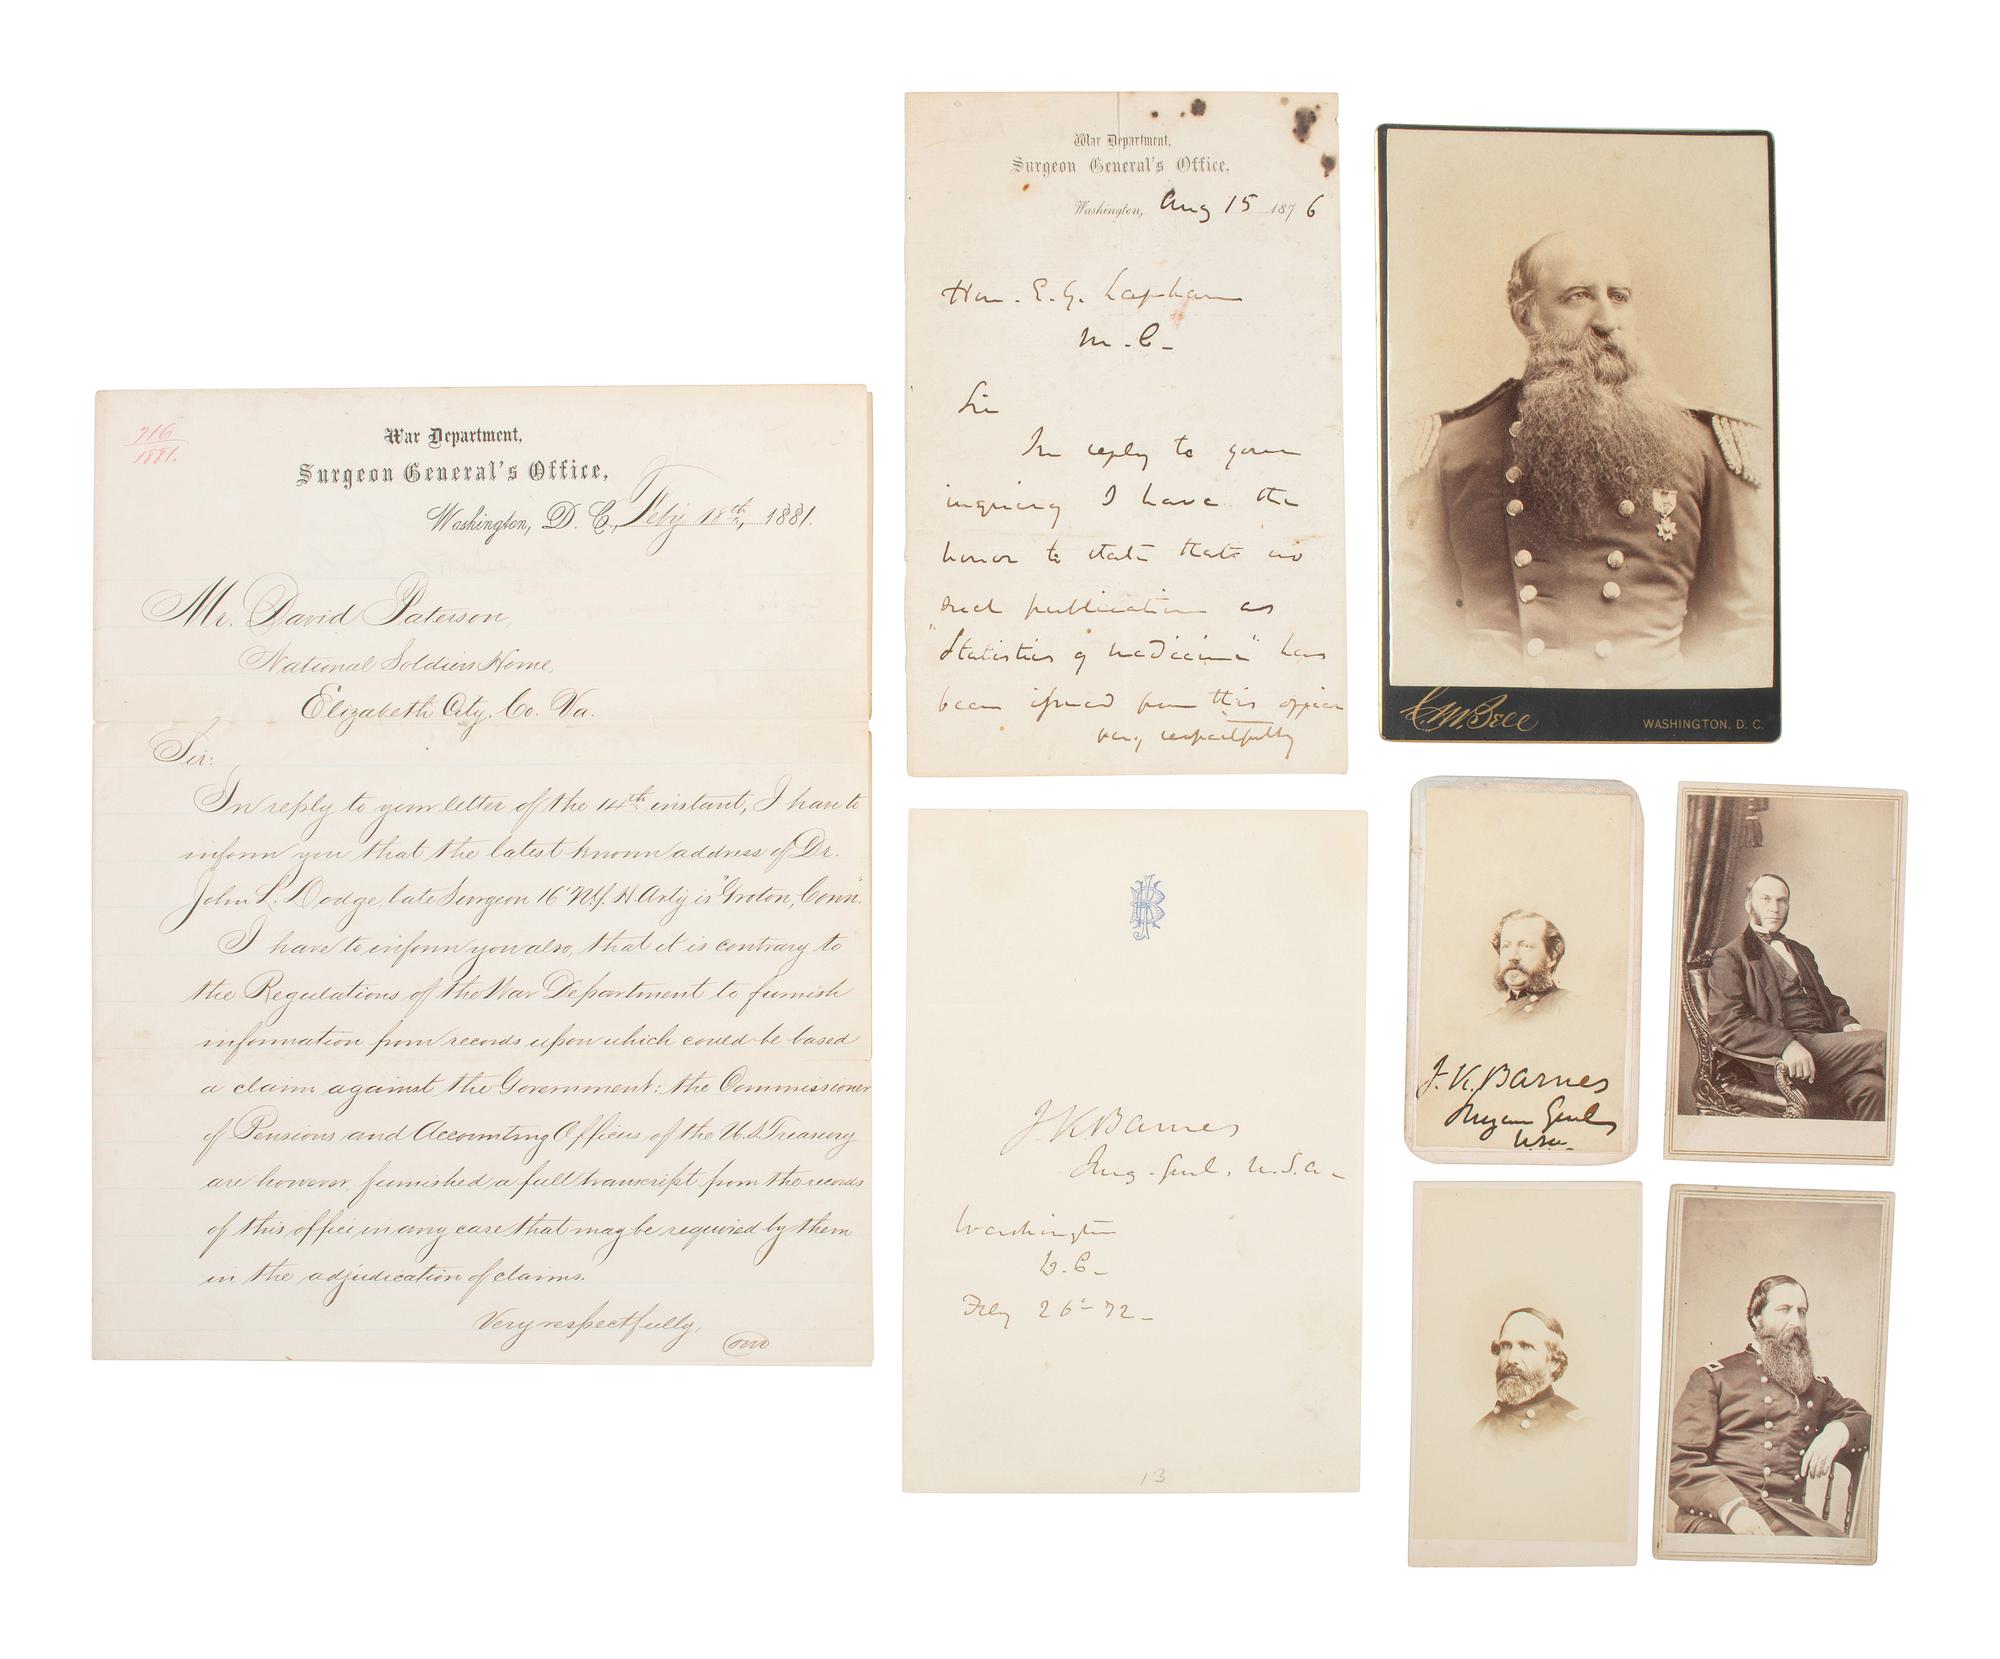 716
1881.
War Department,
Surgeon General's Office,
Washington, D. C., Feby 18th, 1881.
Mr. David Paterson,
National Soldiers Home,
Elizabeth City, Co. Va.
Sir:
In reply to your letter of the 14th instant, I have to
inform you that the latest known address of Dr.
John L. Dodge, late Surgeon 16" N.Y. H. Arty is "Groton, Conn."
I have to inform you also, that it is contrary to
the Regulations of the War Department to furnish
information from records upon which could be based
a claim against the Government: the Commissioner
of Pensions and Accounting Officers of the U.S. Treasury
are however, furnished a full transcript from the records
of this office in any case that may be required by them
in the adjudication of claims.
Very respectfully,
War Department,
Surgeon General's Office,
Washington, Aug 15 1876
Hon. E. G. Lapham
M. C.
Sir
In reply to your
inquiry I have the
honor to state that no
such publication as
"Statistics of medicine" has
been issued from this office
very respectfully
J. K. Barnes
Surg. Genl. U.S.A.
Washington
D.C.
Feby 26 - 72
13
C. M. Bell
WASHINGTON, D. C.
J. K. Barnes
Surgeon Genl
USA